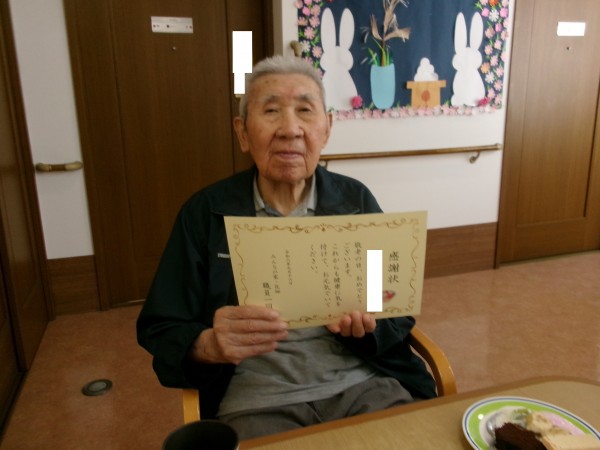 感謝状
敬老の日、おめでとう
ございます。
これからも健康に気を
付けて、お元気でいて
ください。
職員一同